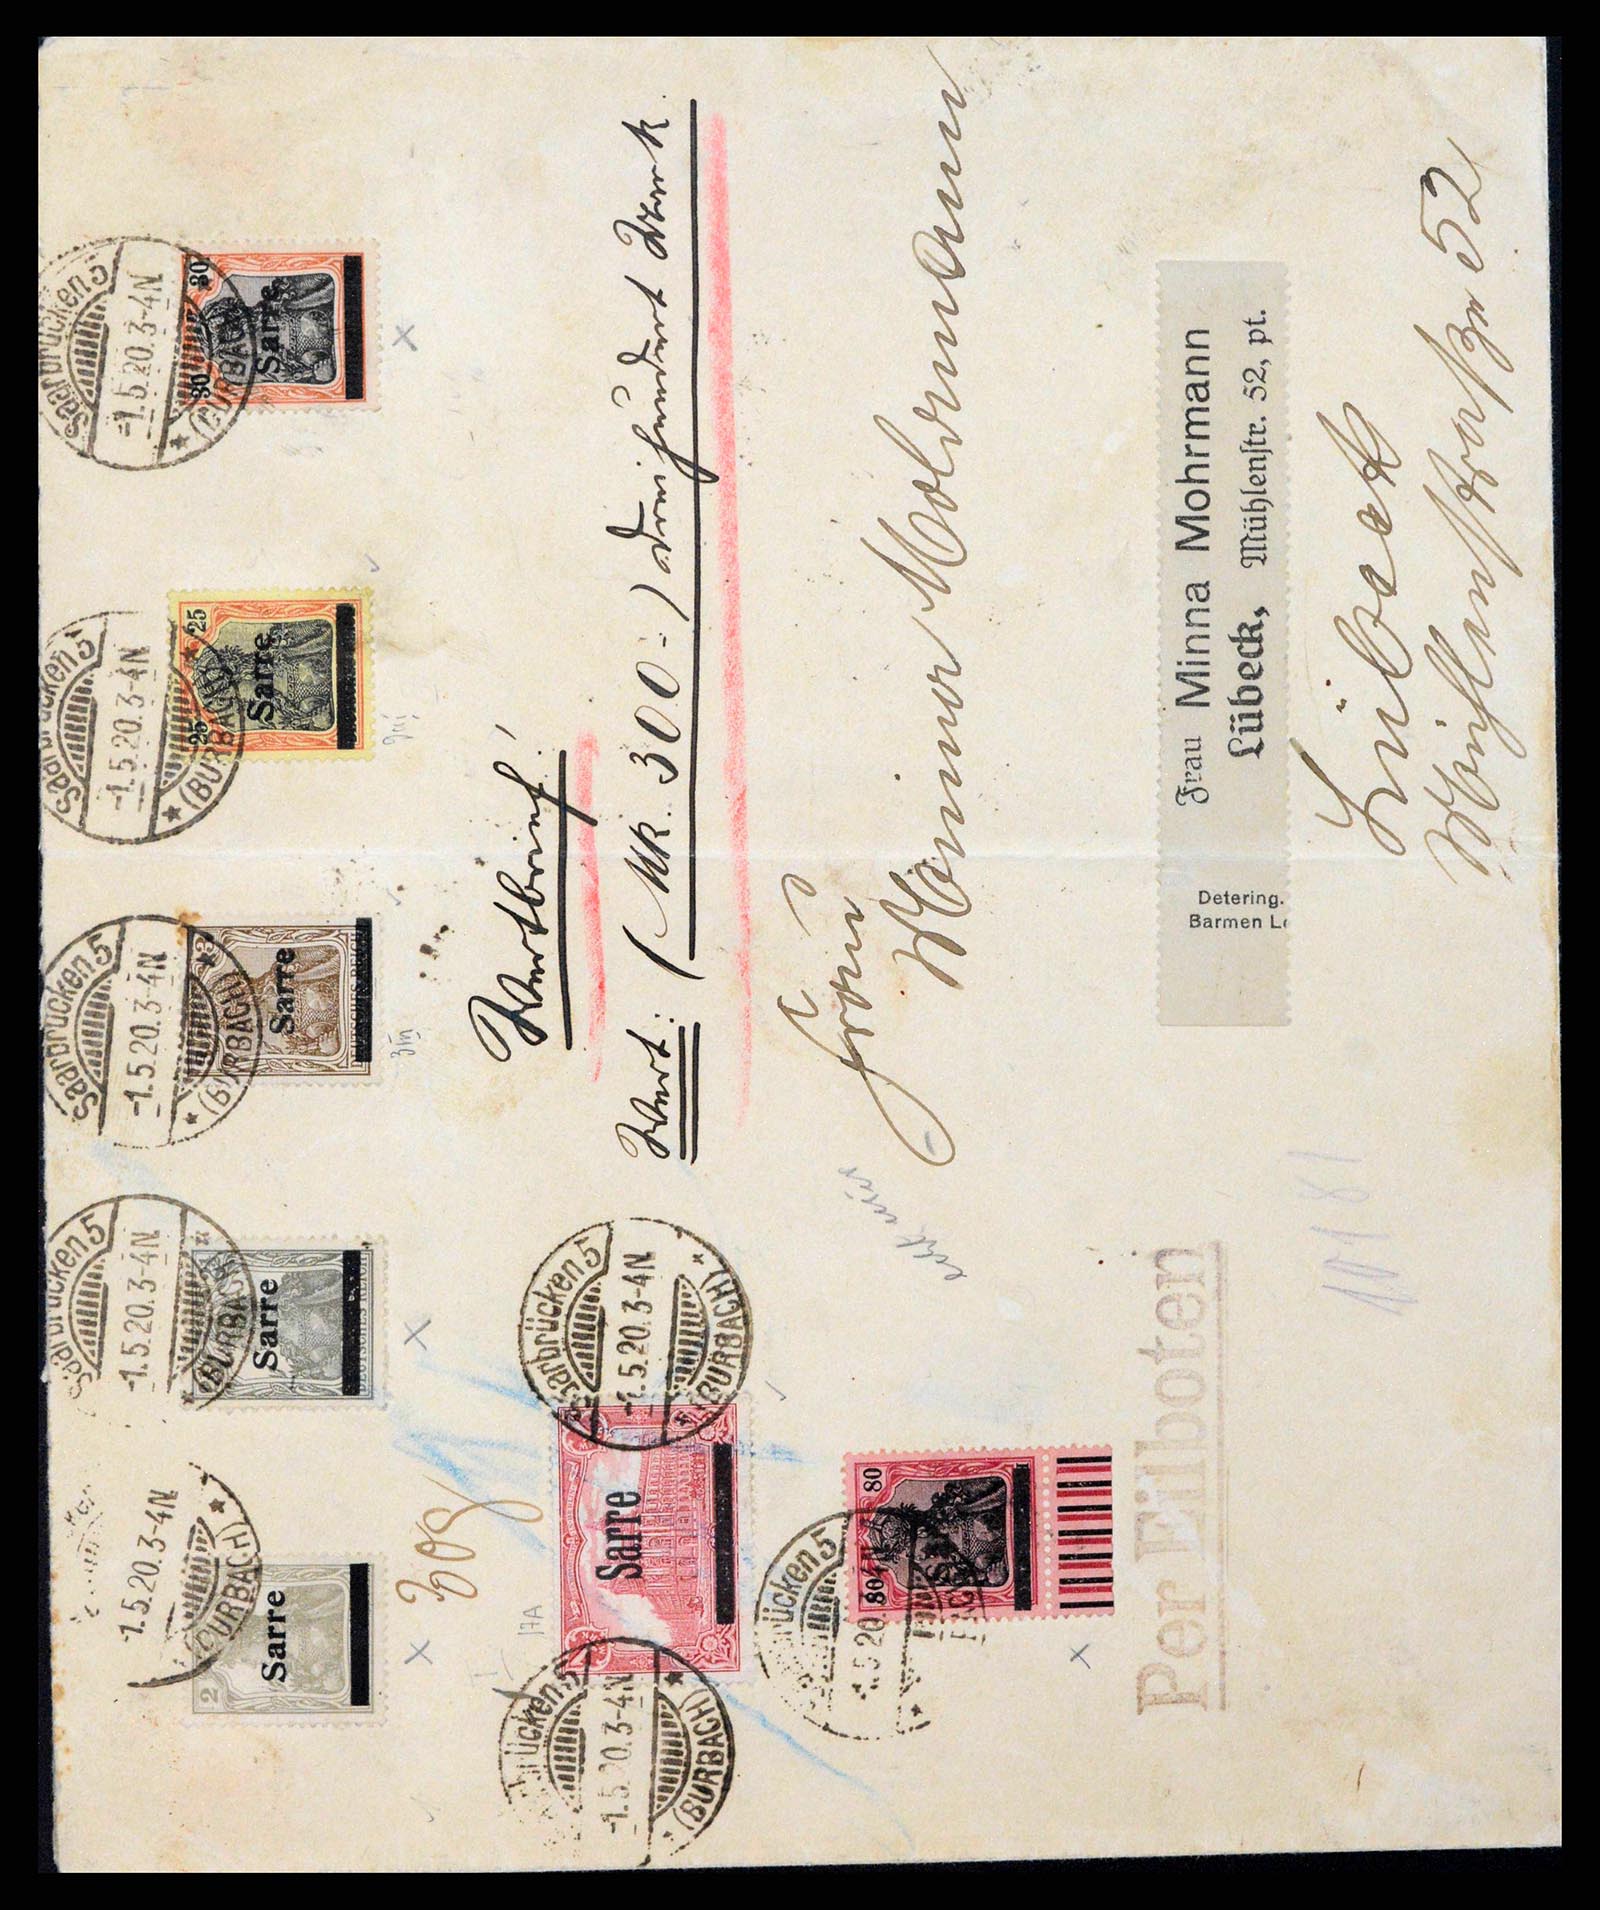 Saarbrücken 5
-1.5.20.3-4N
(BURBACH)
30 30
Sarre
Saarbrücken 5
-1.5.20.3-4N
(BURBACH)
25 25
Sarre
Saarbrücken 5
-1.5.20.3-4N
(BURBACH)
3
Sarre
Saarbrücken 5
-1.5.20.3-4N
(BURBACH)
Sarre
-1.5.20.3-4N
(BURBACH)
2
Sarre
Wertbrief!
Wert: (Mk. 300.-) dreihundert Mark.
208
17A
Saarbrücken 5
-1.5.20.3-4N
(BURBACH)
Sarre
Saarbrücken 5
-1.5.20.3-4N
(BURBACH)
80 80
Frau
Frau Minna Mohrmann
Lübeck, Mühlenstr. 52, pt.
Detering.
Barmen L
Lübeck
Mühlenstraße 52
Per Eilboten